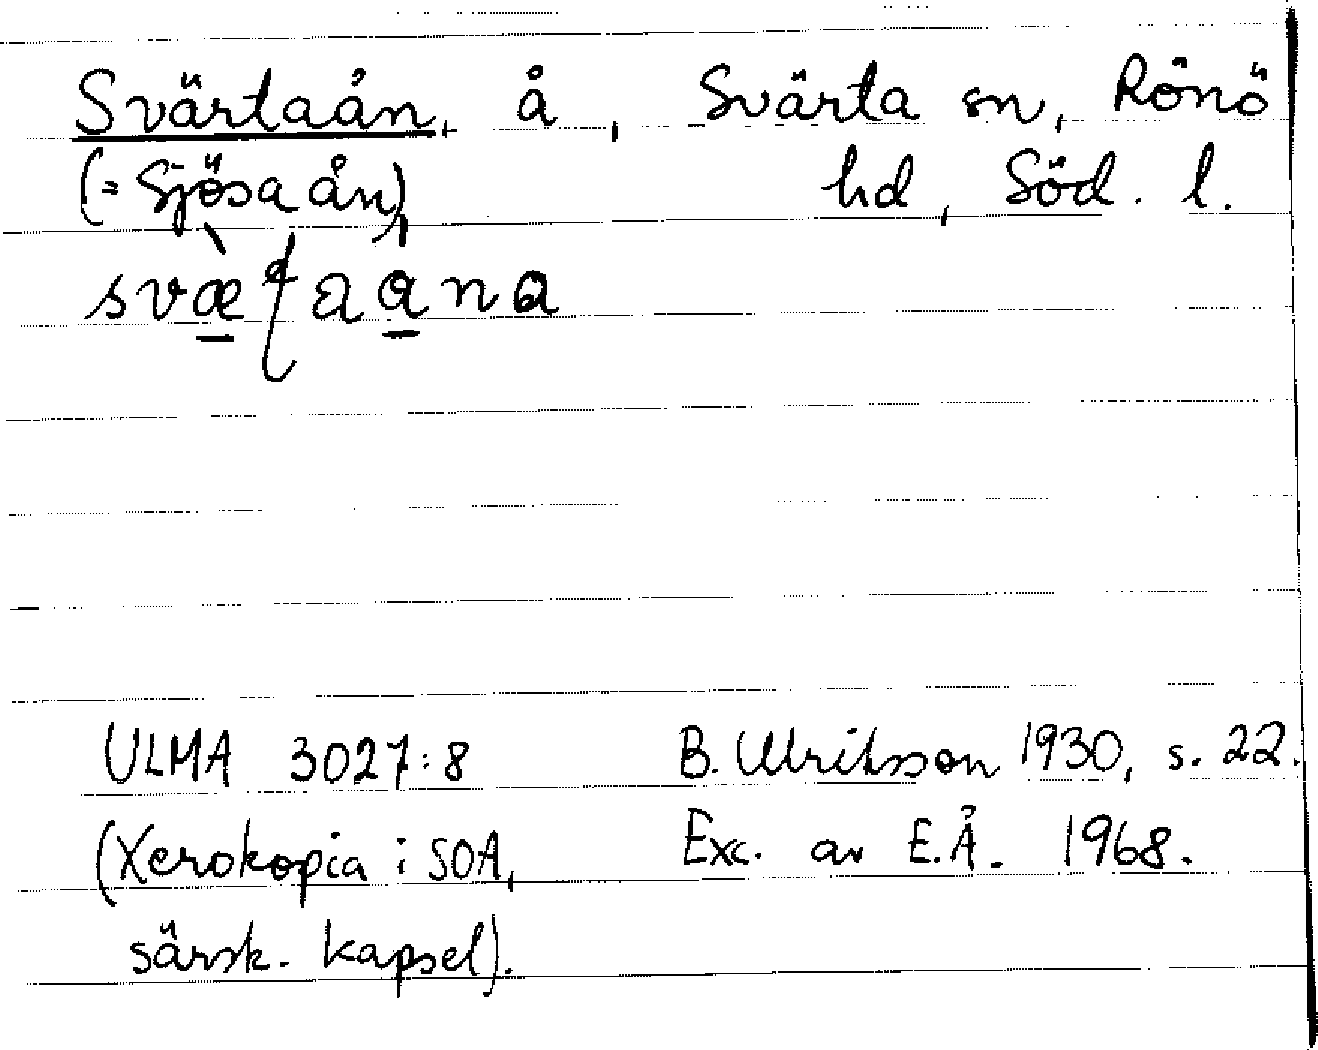 Svärtaån, å, Svärta sn, Rönö
(= Sjösaån), hd, Söd. l.
ULMA 3027:8 B. Ulriksson 1930, s. 22.
(Xerokopia i SOA, Exc. av E.Å. 1968.
särsk. kapsel).